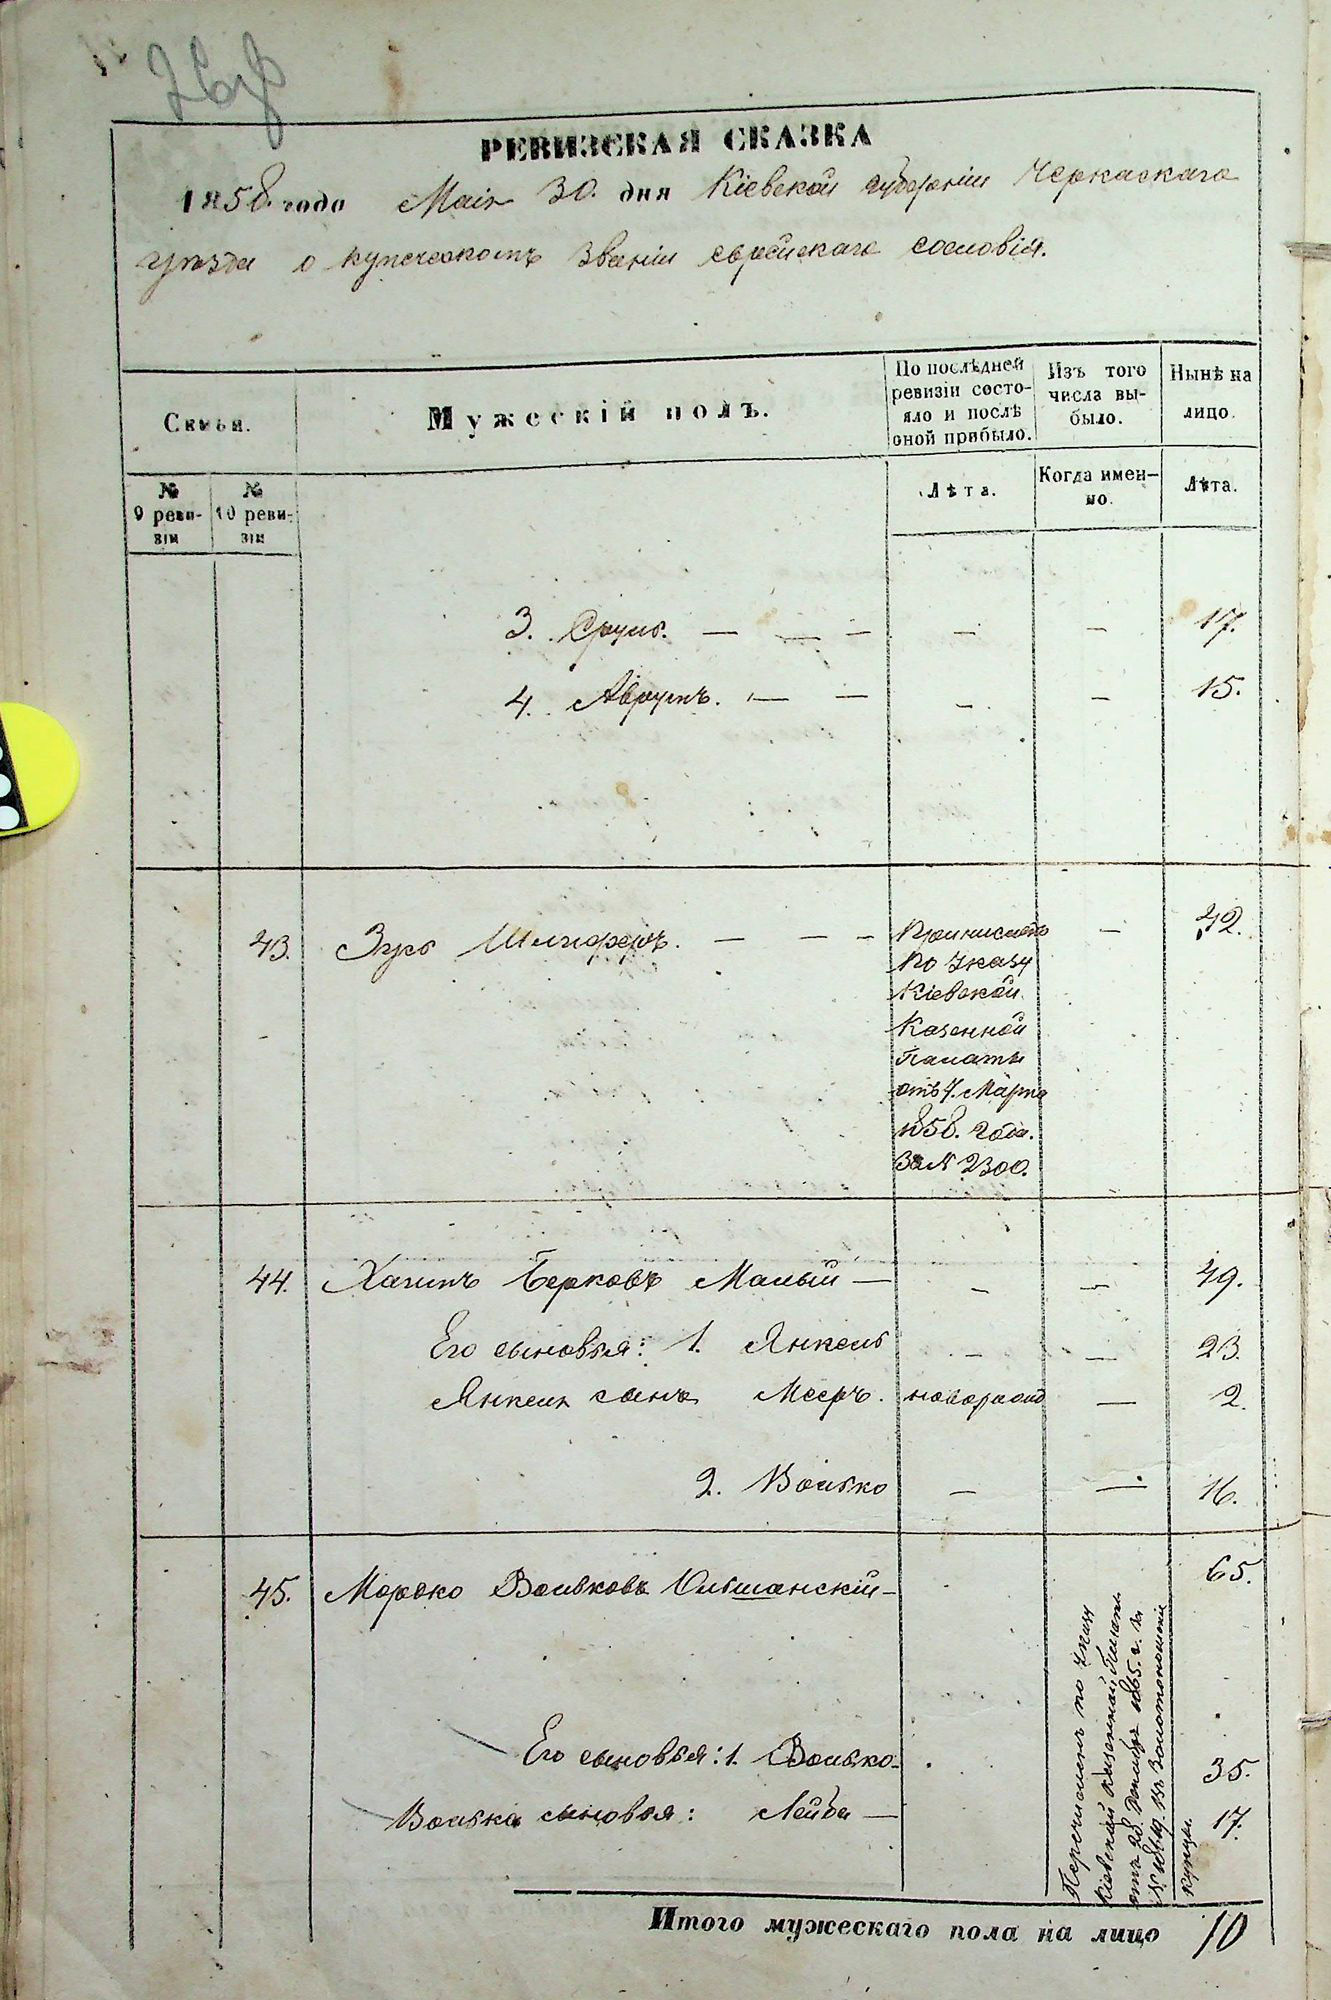 26об
РЕВИЗСКАЯ СКАЗКА
1858. года Маія 30. дня Кіевской губерніи Черкаскаго
уѣзда о купеческомъ званіи еврейскаго сословія.
Семьи.
Мужескій полъ.
По послѣдней ревизіи состояло и послѣ оной прибыло.
Изъ того числа выбыло.
Нынѣ на лицо.
№ 9 ревизіи
№ 10 ревизіи
Лѣта.
Когда именно.
Лѣта.
3. Сруль. — — — — — 17.
4. Аврумъ. — — — — 15.
43. Зусь — — — — 42.
Приписанъ
по указу
Кіевской
Казенной
Палаты
отъ 7. Марта
1858. года.
За № 2300.
44. Хаимъ Берковъ Малый — — — 49.
Его сыновья: 1. Янкель — — 23.
Янкеля сынъ Мееръ. новорожд — 2.
2. Волько — — 16.
45. Мордко Вольковъ Ольшанскій — 65.
Его сыновья: 1. Волько — 35.
Волька сыновья: Лейба — 17.
Перечисленъ по указу
Кіевской Казенной Палаты
отъ 28. Декабря 1865. г. за
№ въ Золотоношскіе
купцы.
Итого мужескаго пола на лицо 10